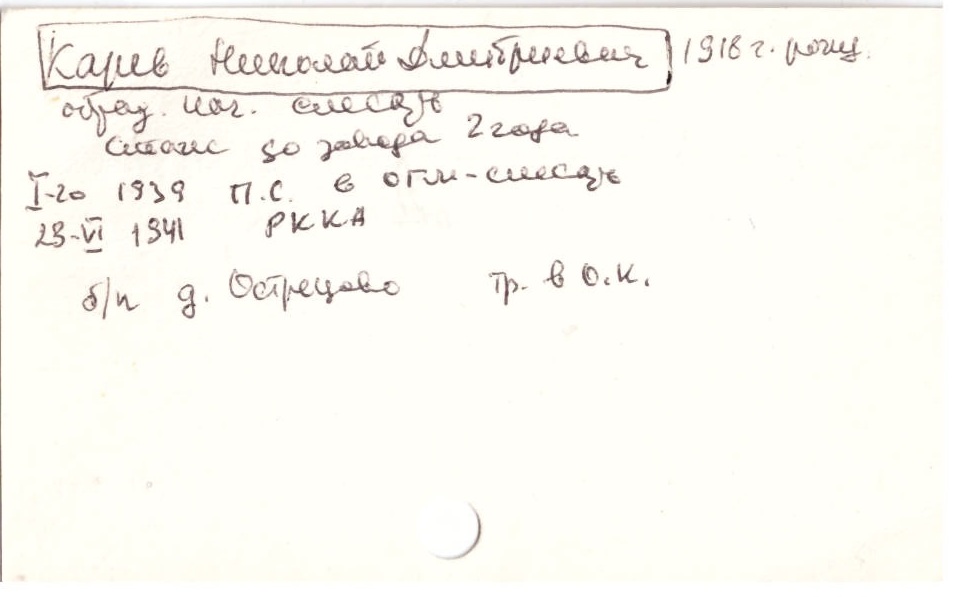 Карев Николай Дмитриевич 1918 г. рожд.
образ. нач. слесарь
стаж до завода 2 года
I-го 1939 П.С. в отм-слесарь
23-VI 1941 РККА
б/п д. Острецово тр. в О.К.